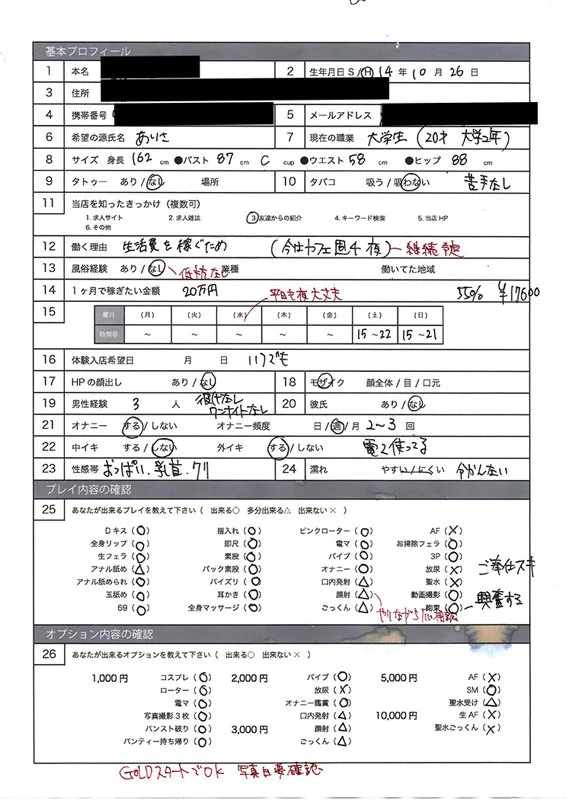 基本プロフィール
1 本名 2 生年月日 S / H 14 年 10 月 26 日
3 住所
4 携帯番号 5 メールアドレス
6 希望の源氏名 ありさ 7 現在の職業 大学生 (20才 大学2年)
8 サイズ 身長 162 cm ●バスト 87 cm C cup ●ウエスト 58 cm ●ヒップ 88 cm
9 タトゥー あり / なし 場所 10 タバコ 吸う / 吸わない 苦手なし
11 当店を知ったきっかけ(複数可)
1. 求人サイト 2. 求人雑誌 3. 友達からの紹介 4. キーワード検索 5. 当店 HP
6. その他
12 働く理由 生活費を稼ぐため (今はカフェ週4 夜)
13 風俗経験 あり / なし 業種 働いてた地域
14 1ヶ月で稼ぎたい金額 20万円 55% ¥17600
平日も夜大丈夫
15 曜日 (月) (火) (水) (木) (金) (土) (日)
時間帯 ~ ~ ~ ~ ~ 15~22 15~21
16 体験入店希望日 月 日 いつでも
17 HPの顔出し あり / なし 18 モザイク 顔全体 / 目 / 口元
19 男性経験 3 人 ワンナイトなし 20 彼氏 あり / なし
21 オナニー する / しない オナニー頻度 日 / 週 / 月 2~3 回
22 中イキ する / しない 外イキ する / しない 電マ使ってる
23 性感帯 おっぱい、乳首、クリ 24 濡れ やすい / にくい 分かんない
プレイ内容の確認
25 あなたが出来るプレイを教えて下さい ( 出来る○ 多分出来る△ 出来ない× )
Dキス (○) 指入れ (○) ピンクローター (○) AF (×)
全身リップ (○) 即尺 (○) 電マ (○) お掃除フェラ (○)
生フェラ (○) 素股 (○) バイブ (○) 3P (○)
アナル舐め (△) バック素股 (○) オナニー (○) 放尿 (×) ご奉仕スキ
アナル舐められ (○) パイズリ (○) 口内発射 (△) 聖水 (×)
玉舐め (○) 耳かき (○) 顔射 (△) 動画撮影 (○) 興奮する
69 (○) 全身マッサージ (○) ごっくん (△) 拘束 (○)
オプション内容の確認
26 あなたが出来るオプションを教えて下さい ( 出来る○ 出来ない× )
1,000円 コスプレ (○) 2,000円 バイブ (○) 5,000円 AF (×)
ローター (○) 放尿 (×) SM (○)
電マ (○) オナニー鑑賞 (○) 聖水受け (△)
写真撮影3枚 (○) 口内発射 (△) 10,000円 生AF (×)
パンスト破り (○) 3,000円 顔射 (△) 聖水ごっくん (×)
パンティー持ち帰り (○) ごっくん (△)
GOLDスタートでOK